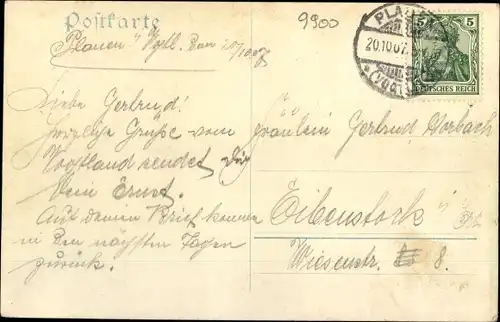 Postkarte
9900
Plauen i/ Vgtl. den 20/10 07
PLAUEN
20.10.07.
(VOGTL
5 5
DEUTSCHES REICH
Liebe Gertrud!
Herzliche Grüße vom
Vogtland sendet Dir
Dein Ernst.
Auf deinen Brief komme
in den nächsten Tagen
zurück.
Fräulein Gertrud Horbach
Eibenstock i/
Wiesenstr. 8.